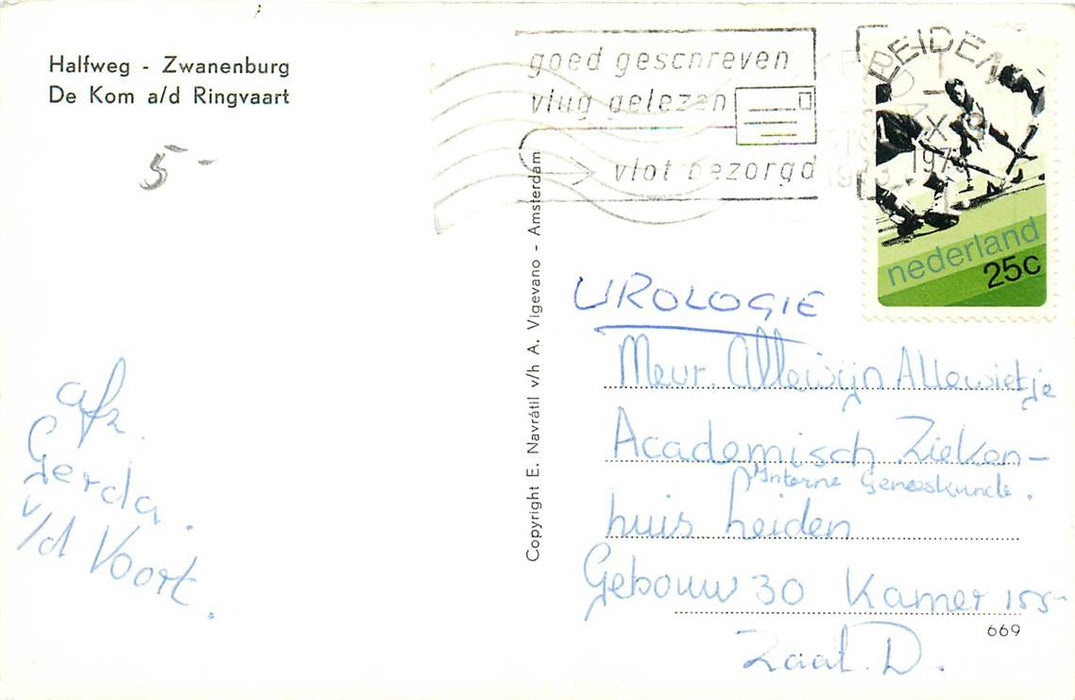 Halfweg - Zwanenburg
De Kom a/d Ringvaart
5-
goed geschreven
vlug gelezen
vlot bezorgd
LEIDEN
nederland
25c
Copyright E. Navrátil v/h A. Vigevano - Amsterdam
UROLOGIE
Mevr. Allewijn Allewietje
Academisch Zieken-
Interne Geneeskunde.
huis Leiden
Gebouw 30 Kamer 155-
Zaal. D.
669
afz.
Gerda.
v/d Voort.